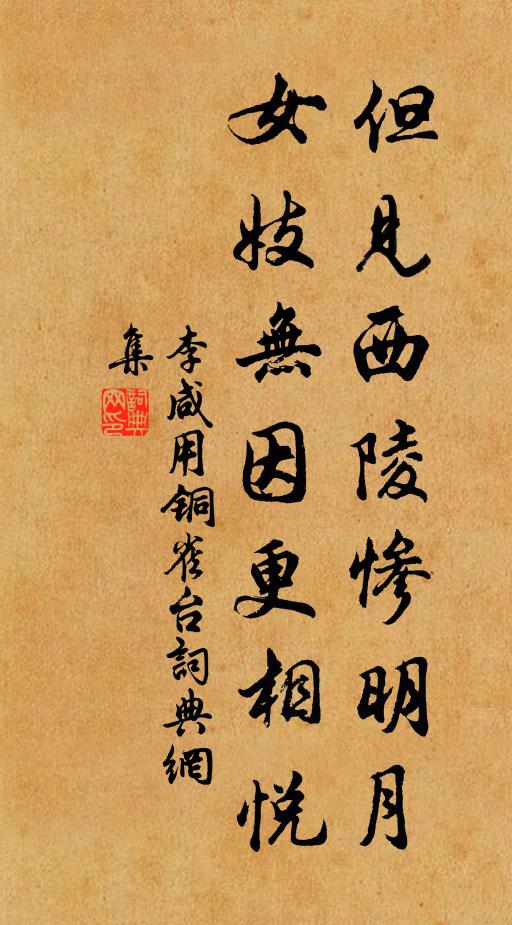 但見西陵慘明月
女妓無因更相悅
李咸用銅雀台詞典網
集
詞典
網印